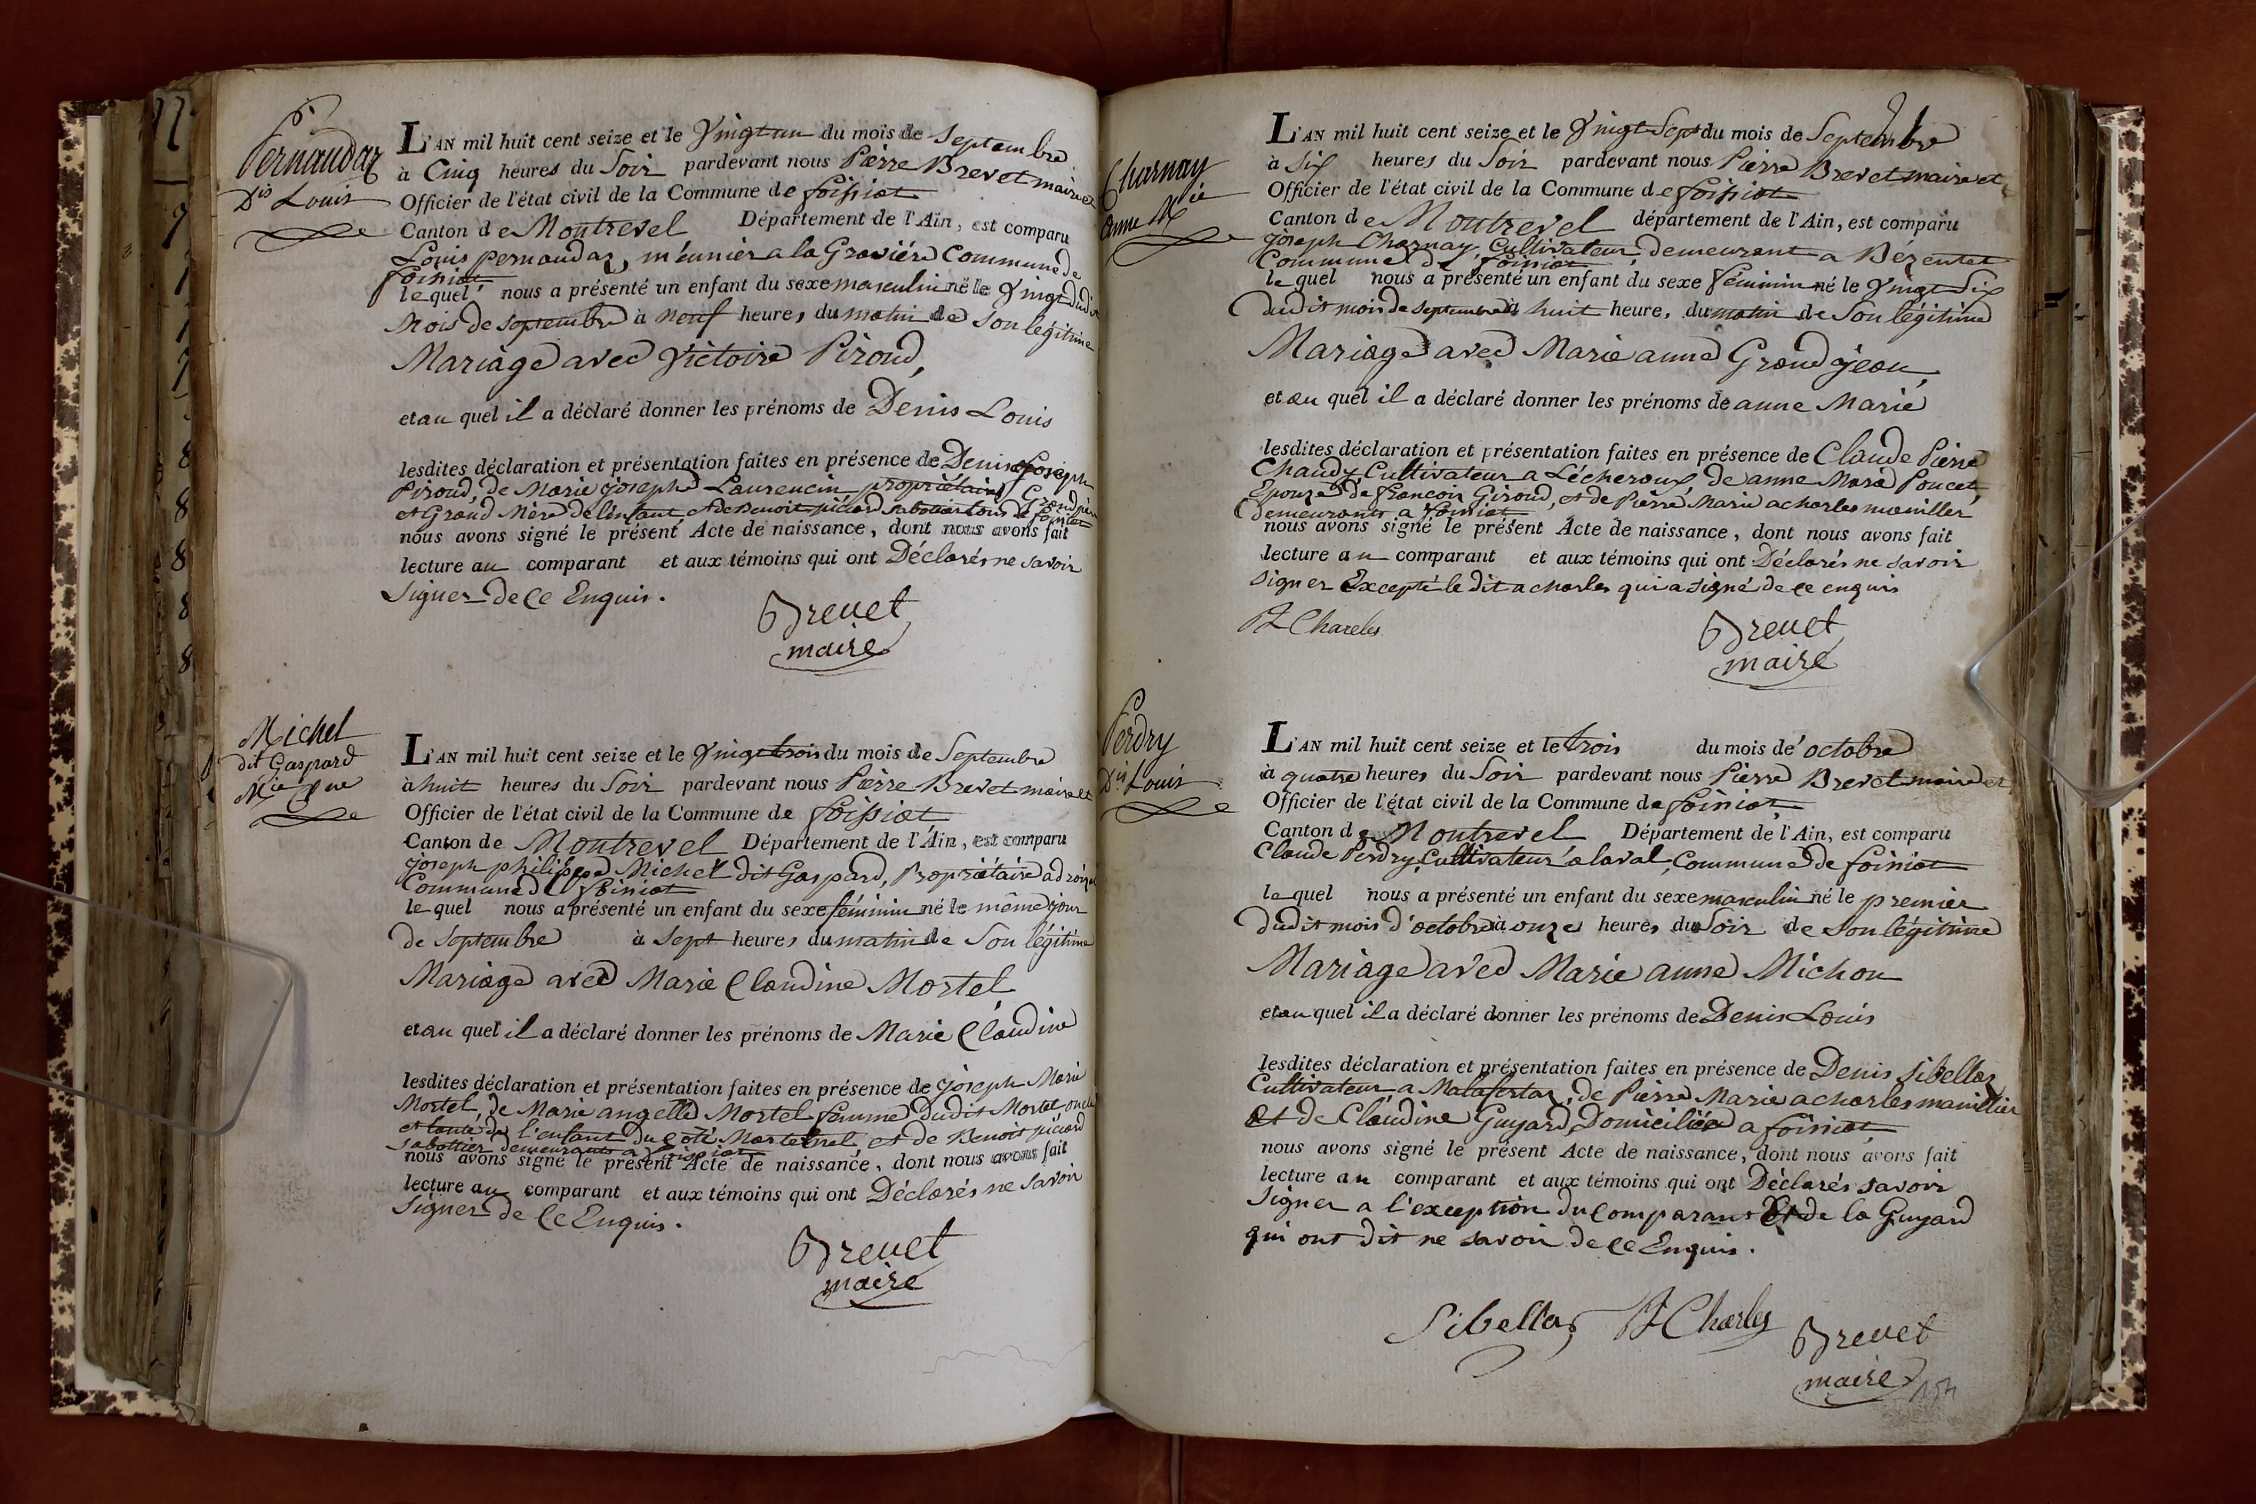 Pernaudaz
Dis Louis
L'AN mil huit cent seize et le Vingt un du mois de Septembre
à Cinq heures du Soir pardevant nous Pierre Brevet maire et
Officier de l'état civil de la Commune de foissiat
Canton de Montrevel Département de l'Ain, est comparu
Louis pernaudaz, meunier a la Graviére Commune de
foissiat
le quel nous a présenté un enfant du sexe masculin né le Vingt dudit
Mois de septembre à neuf heures du matin de Son légitime
Mariage avec Victoire Piroud,
et au quel il a déclaré donner les prénoms de Denis Louis
lesdites déclaration et présentation faites en présence de Denis joseph
Piroud, de Marie joseph Laurencin propriétaires Grand père
et Grand Mère de l'enfant et de Benoit piciard sabottier tous a foissiat
nous avons signé le présent Acte de naissance, dont nous avons fait
lecture au comparant et aux témoins qui ont Déclarés ne savoir
Signer de Ce Enquis.
Brevet
maire
Michel
dit Gaspard
Mie Cne
L'AN mil huit cent seize et le Vingt trois du mois de Septembre
à huit heures du Soir pardevant nous Pierre Brevet maire et
Officier de l'état civil de la Commune de foissiat
Canton de Montrevel Département de l'Ain, est comparu
joseph philippe Michel dit Gaspard, Propriétaire a
Commune de foissiat
le quel nous a présenté un enfant du sexe féminin né le même jour
de Septembre à Sept heures du matin de Son légitime
Mariage avec Marie Claudine Mortel
et au quel il a déclaré donner les prénoms de Marie Claudine
lesdites déclaration et présentation faites en présence de joseph Marie
Mortel, de Marie angelle Mortel femme dudit Mortel oncle
et tante de l'enfant du côté Maternel, et de Benoit piciard
sabottier demeurants a foissiat
nous avons signé le présent Acte de naissance, dont nous avons fait
lecture au comparant et aux témoins qui ont Déclarés ne savoir
Signer de Ce Enquis.
Brevet
maire
Charnay
anne Mie
L'AN mil huit cent seize et le Vingt Sept du mois de Septembre
à Six heures du Soir pardevant nous Pierre Brevet maire et
Officier de l'état civil de la Commune de foissiat
Canton de Montrevel département de l'Ain, est comparu
joseph Charnay, Cultivateur, demeurant a Bézentet
Commune de foissiat
le quel nous a présenté un enfant du sexe féminin né le Vingt Six
dudit mois de septembre à huit heures du matin de Son légitime
Mariage avec Marie anne Grand jean,
et au quel il a déclaré donner les prénoms de anne Marie
lesdites déclaration et présentation faites en présence de Claude Pierre
Chaudy, Cultivateur a Lécheroux, de anne Marie Poncet,
Epouse de françois Giroud, et de Pierre Marie acharles manillier
demeurants a foissiat
nous avons signé le présent Acte de naissance, dont nous avons fait
lecture au comparant et aux témoins qui ont Déclarés ne savoir
Signer Excepté le dit acharles qui a signé de ce enquis
Charles
Brevet
maire
Perdry
Dis Louis
L'AN mil huit cent seize et le trois du mois de octobre
à quatre heures du Soir pardevant nous Pierre Brevet maire et
Officier de l'état civil de la Commune de foissiat
Canton de Montrevel Département de l'Ain, est comparu
Claude Perdry, Cultivateur a laval, Commune de foissiat
le quel nous a présenté un enfant du sexe masculin né le premier
dudit mois d'octobre à onze heures du Soir de Son légitime
Mariage avec Marie anne Michon
et au quel il a déclaré donner les prénoms de Denis Louis
lesdites déclaration et présentation faites en présence de Denis Sibellas
Cultivateur a Malafertaz, de Pierre Marie acharles manillier
et de Claudine Guyard, Domiciliée a foissiat,
nous avons signé le présent Acte de naissance, dont nous avons fait
lecture au comparant et aux témoins qui ont Déclarés savoir
Signer a l'exception du Comparant et de la Guyard
qui ont dit ne savoir de Ce Enquis.
Sibellas Charles
Brevet
maire
154